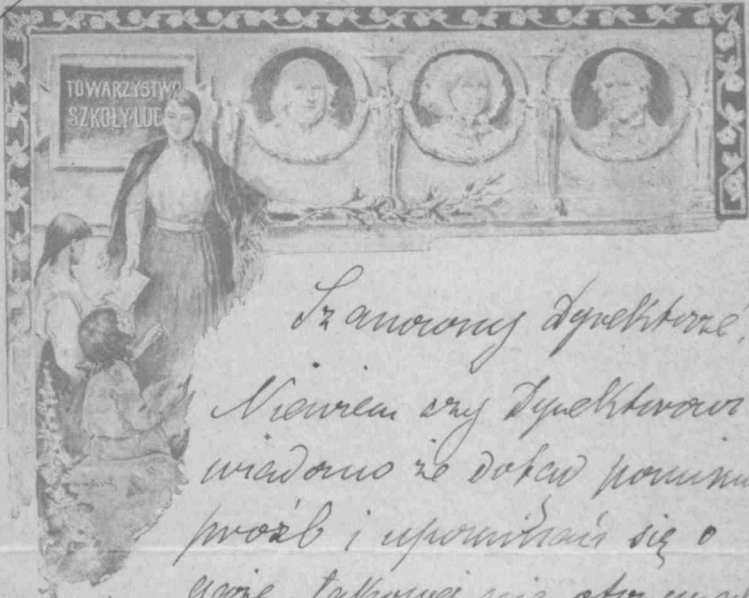 TOWARZYSTWO
SZKOŁY LUD
Szanowny Dyrektorze,
Niewiem czy Dyrektorowi
wiadomo że dotąd pomimo
próźb i upominań się o
takowej nie